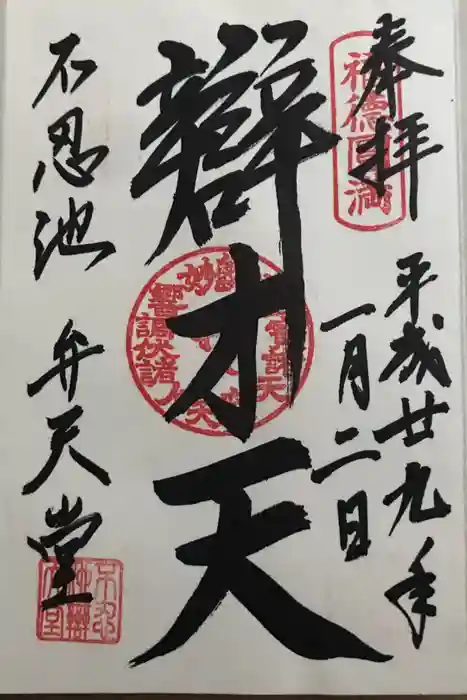 奉拝
福徳圓満
平成廿九年
一月二日
辯才天
不忍池 弁天堂